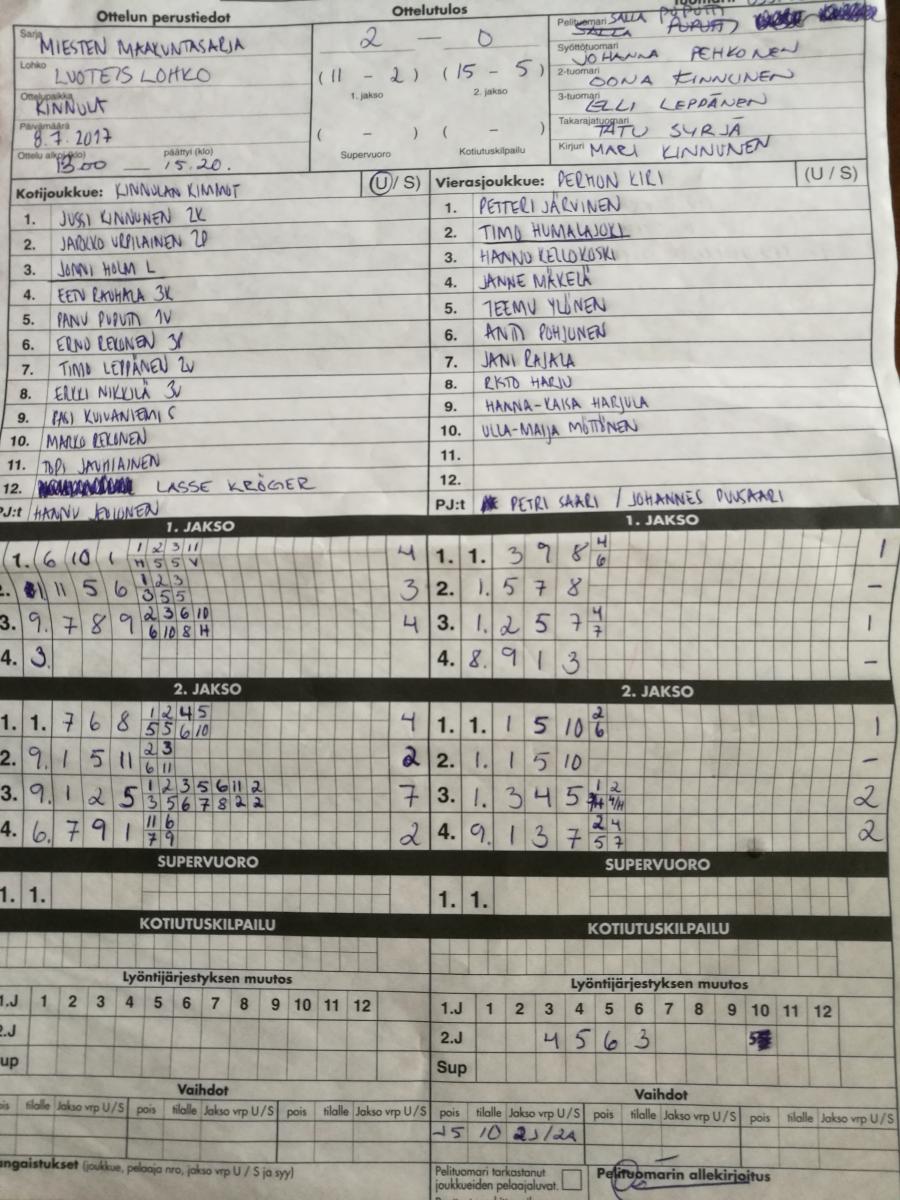 Ottelun perustiedot
Sarja MIESTEN MAAKUNTASARJA
Lohko LUOTEIS LOHKO
Ottelupaikka KINNULA
Päivämäärä 8.7.2017
Ottelu alkoi (klo) 13.00 — päättyi (klo) 15.20.
Ottelutulos
2 - 0
(11 - 2) (15 - 5)
1. jakso 2. jakso
( - ) ( - )
Supervuoro Kotiutuskilpailu
Pelituomari SALLA PUPUTTI
Syöttötuomari JOHANNA PEHKONEN
2-tuomari OONA KINNUNEN
3-tuomari ELLI LEPPÄNEN
Takarajatuomari TATU SYRJÄ
Kirjuri MARI KINNUNEN
Kotijoukkue: KINNULAN KIMMOT (U / S)
1. JUSSI KINNUNEN 2K
2. JARKKO URPILAINEN 2P
3. JONNI HOLM L
4. EETU RAUHALA 3K
5. PANU PUPUTTI 1V
6. ERNO REKONEN 3P
7. TIMO LEPPÄNEN 2V
8. ERKKI NIKKILÄ 3V
9. PASI KUIVANIEMI S
10. MARKO REKONEN
11. TOPI JAUHIAINEN
12. LASSE KRÖGER
PJ:t HANNU
Vierasjoukkue: PERHON KIRI (U / S)
1. PETTERI JÄRVINEN
2. TIMO HUMALAJOKI
3. HANNU KELLOKOSKI
4. JANNE MÄKELÄ
5. TEEMU YLÖNEN
6. ANTTI POHJONEN
7. JANI RAJALA
8. RISTO HARJU
9. HANNA-KAISA HARJULA
10. ULLA-MAIJA MÖTTÖNEN
11.
12.
PJ:t PETRI SAARI / JOHANNES PUUSAARI
1. JAKSO
1. 6 10 1 1 2 3 11 4
H 5 5 V
2. 11 5 6 1 2 3 3
3 5 5
3. 9. 7 8 9 2 3 6 10 4
6 10 8 H
4. 3.
1. JAKSO
1. 1. 3 7 8 4 1
6
2. 1. 5 7 8 -
3. 1. 2 5 7 4 1
7
4. 8. 9 1 3 -
2. JAKSO
1. 1. 7 6 8 1 2 4 5 4
5 5 6 10
2. 9. 1 5 11 2 3 2
6 11
3. 9. 1 2 5 1 2 3 5 6 11 2 7
3 5 6 7 8 2 2
4. 6. 7 9 1 11 6 2
7 9
2. JAKSO
1. 1. 1 5 10 2 1
6
2. 1. 1 5 10 -
3. 1. 3 4 5 1 2 2
4/H
4. 9. 1 3 7 2 4 2
5 7
SUPERVUORO
1. 1.
SUPERVUORO
1. 1.
KOTIUTUSKILPAILU
KOTIUTUSKILPAILU
Lyöntijärjestyksen muutos
1.J 1 2 3 4 5 6 7 8 9 10 11 12
2.J
up
Lyöntijärjestyksen muutos
1.J 1 2 3 4 5 6 7 8 9 10 11 12
2.J 4 5 6 3
Sup
Vaihdot
ois tilalle Jakso vrp U / S pois tilalle Jakso vrp U / S pois tilalle Jakso vrp U / S
Vaihdot
pois tilalle Jakso vrp U / S pois tilalle Jakso vrp U / S pois tilalle Jakso vrp U / S
5 10 2J/2A
angaistukset (joukkue, pelaaja nro, jakso vrp U / S ja syy)
Pelituomari tarkastanut
joukkueiden pelaajaluvat.
Pelituomarin allekirjoitus